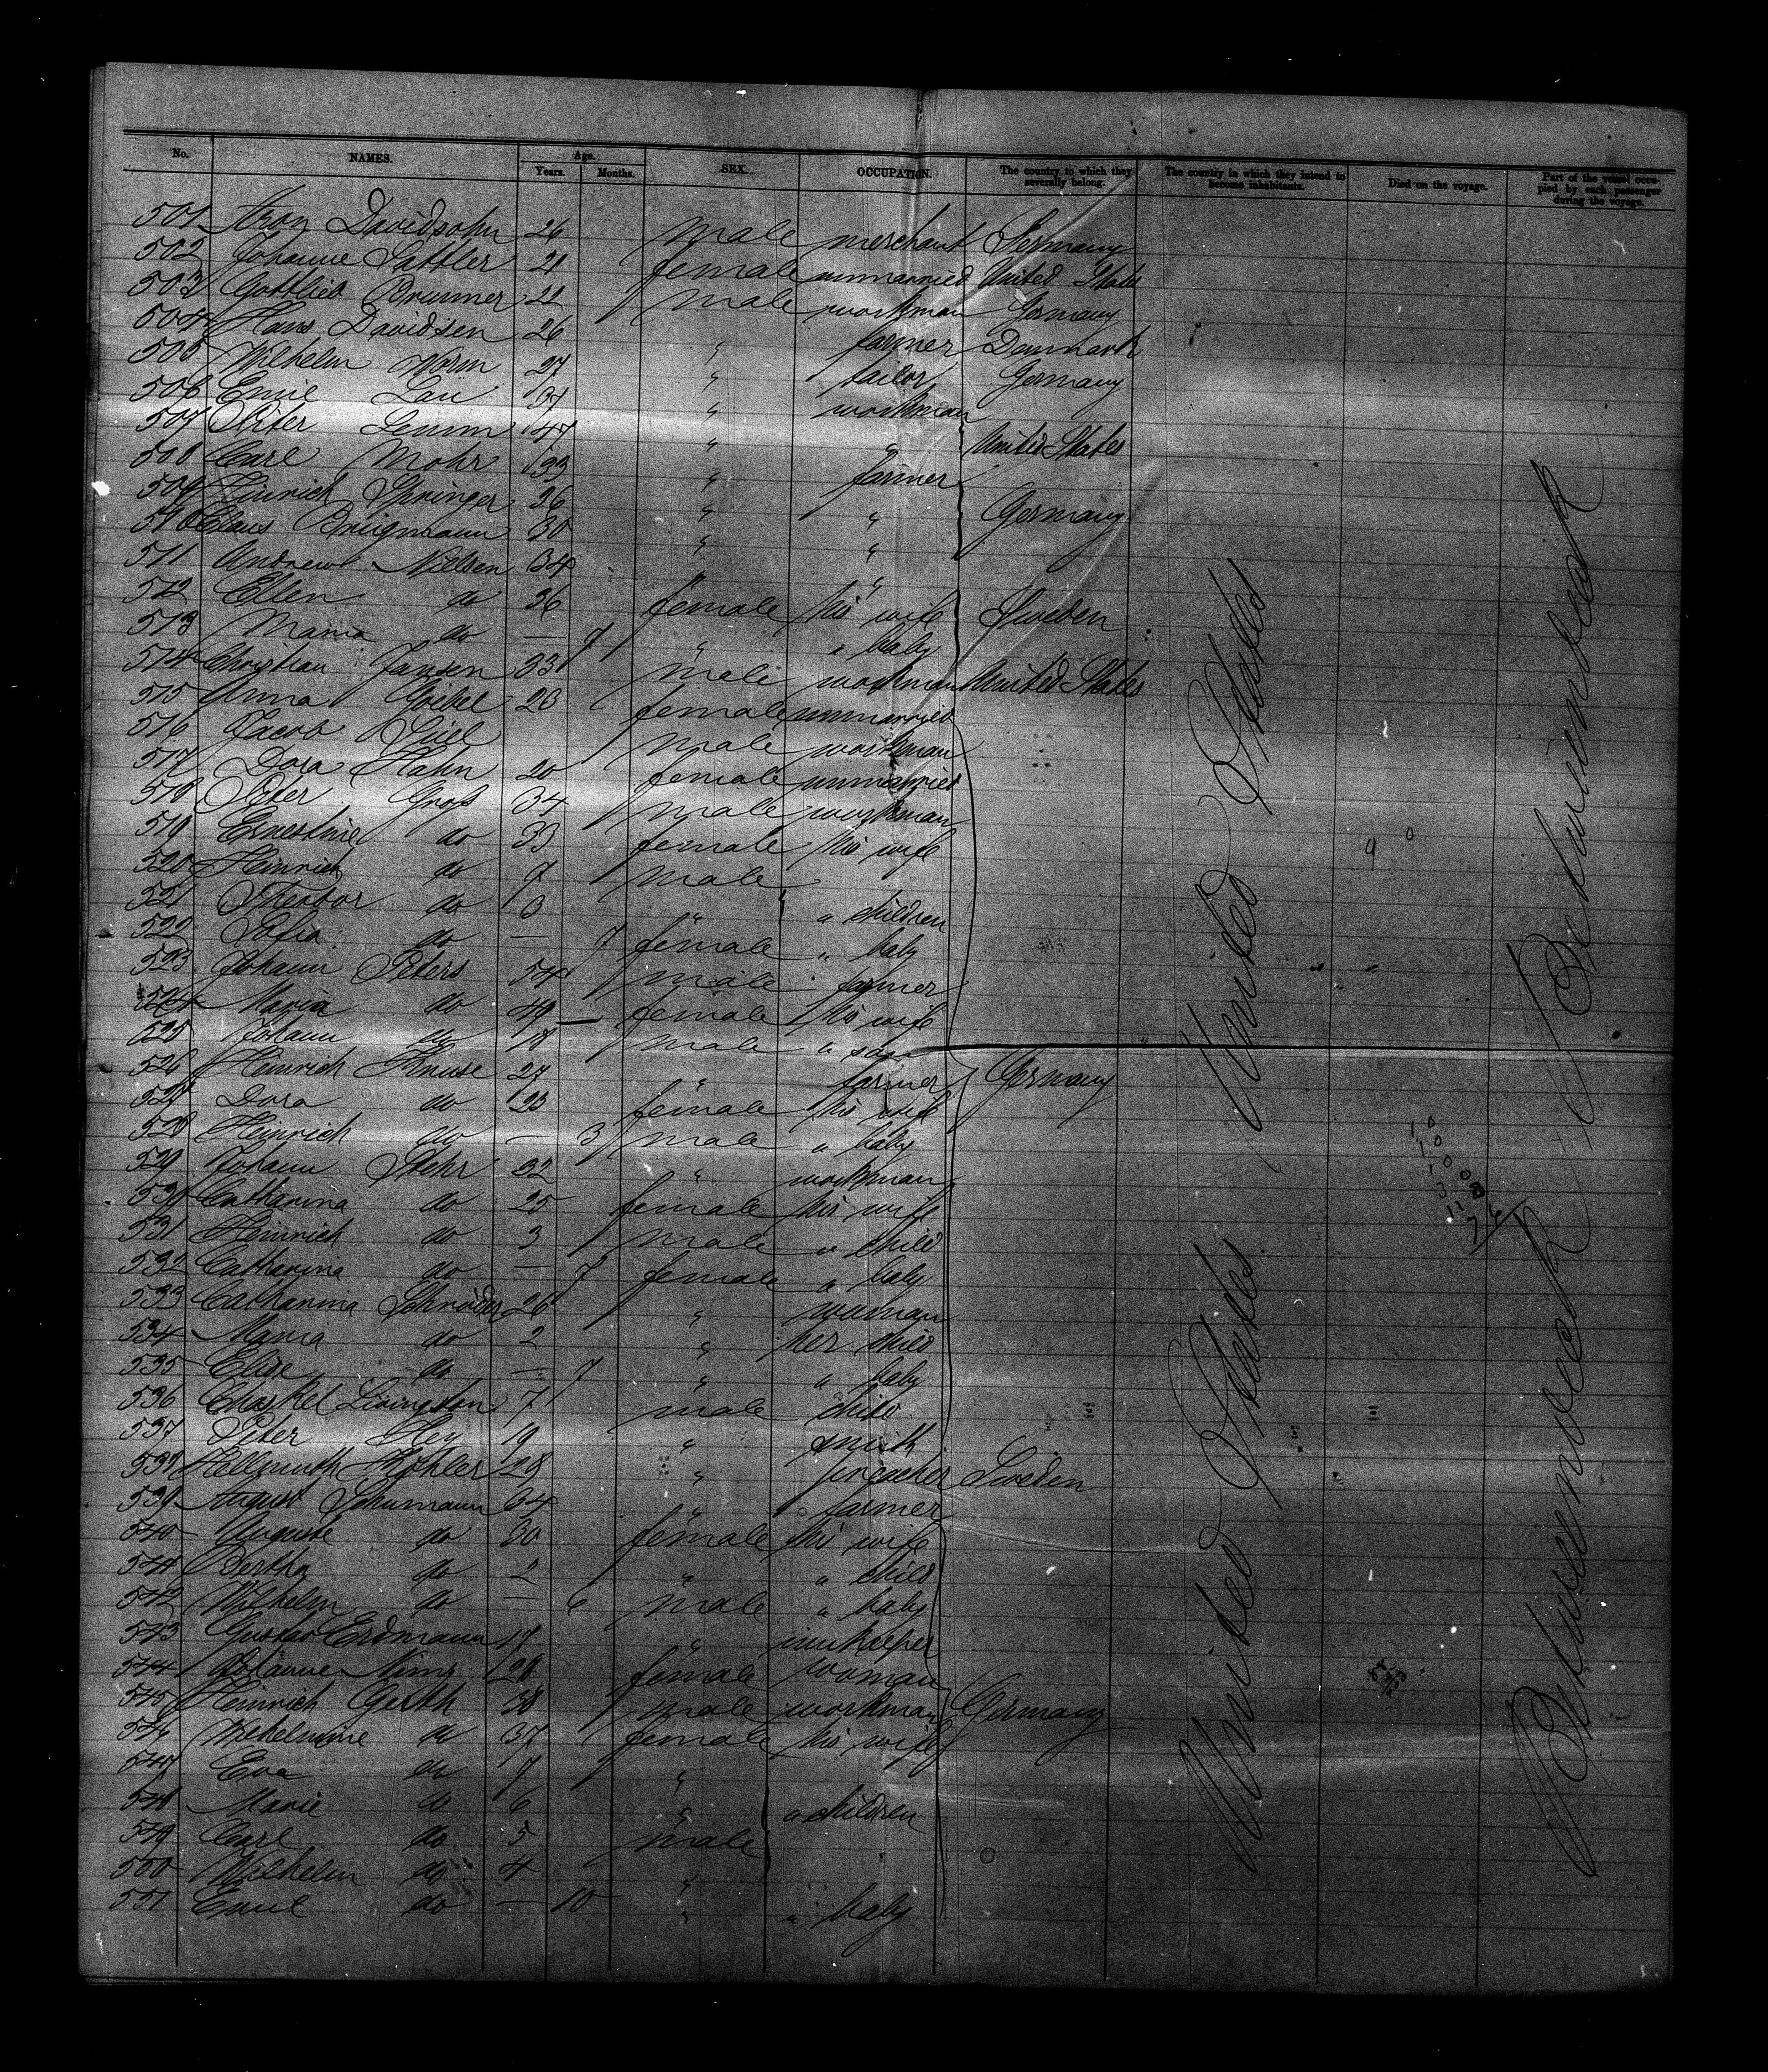 No. NAMES. Age. Years. Months. SEX. OCCUPATION. The country to which they severally belong. The country in which they intend to become inhabitants. Died on the voyage. Part of the vessel occupied by each passenger during the voyage.
501 Aron Davidsohn 26 male merchant Germany
502 Johanne Sattler 21 female unmarried United States
503 Gottlieb Brunner 21 male workman Germany
504 Hans Davidsen 26 " farmer Denmark
505 Wilhelm Worm 27 " tailor Germany
506 Emil Lau 37 " workman
507 Peter Lemm 47 " " United States
508 Carl Mohr 33 " farmer
509 Heinrich Springer 36 " " Germany
510 Claus Brügmann 30 " "
511 Andrew Nielsen 34 "
512 Ellen do 36 female his wife Sweden
513 Maria do — 7 " " baby
514 Christian Jansen 23 male workman United States
515 Anna Goebel 23 female unmarried
516 Jacob male workman
517 Dora Hahn 20 female unmarried
518 Peter Groß 34 male workman
519 Ernestine do 33 female his wife
520 Heinrich do 7 male
521 Theodor do 3 " " children
522 Sofia do — 7 female " baby
523 Johann Peters 54 male farmer
524 Maria do 49 female his wife
525 Johann do 18 male " son
526 Heinrich Kruse 27 " farmer Germany
527 Dora do 23 female his wife
528 Heinrich do — 3 male " baby
529 Johann Stehr 32 " workman
530 Catharina do 25 female his wife
531 Heinrich do 3 male " child
532 Catharina do — 7 female " baby
533 Catharina Schröder 26 " woman
534 Maria do 2 " her child
535 Elise do — 7 " " baby
536 Chaskel Livingston 7 male child
537 Peter Hey 19 " smith
538 Hellmuth Köhler 28 " preacher Sweden
539 August Schumann 34 " farmer
540 Auguste do 30 female his wife
541 Bertha do 2 " " child
542 Wilhelm do — 6 male " baby
543 Gustav Erdmann 17 " innkeeper
544 Johanne Nims 28 female woman
545 Heinrich Gerth 38 male workman Germany
546 Wilhelmine do 37 female his wife
547 Eva do 7 "
548 Marie do 6 " " children
549 Carl do 5 male
550 Wilhelm do 4 "
551 Emil do — 10 " " baby
United States
United States
Betweendeck
Betweendeck